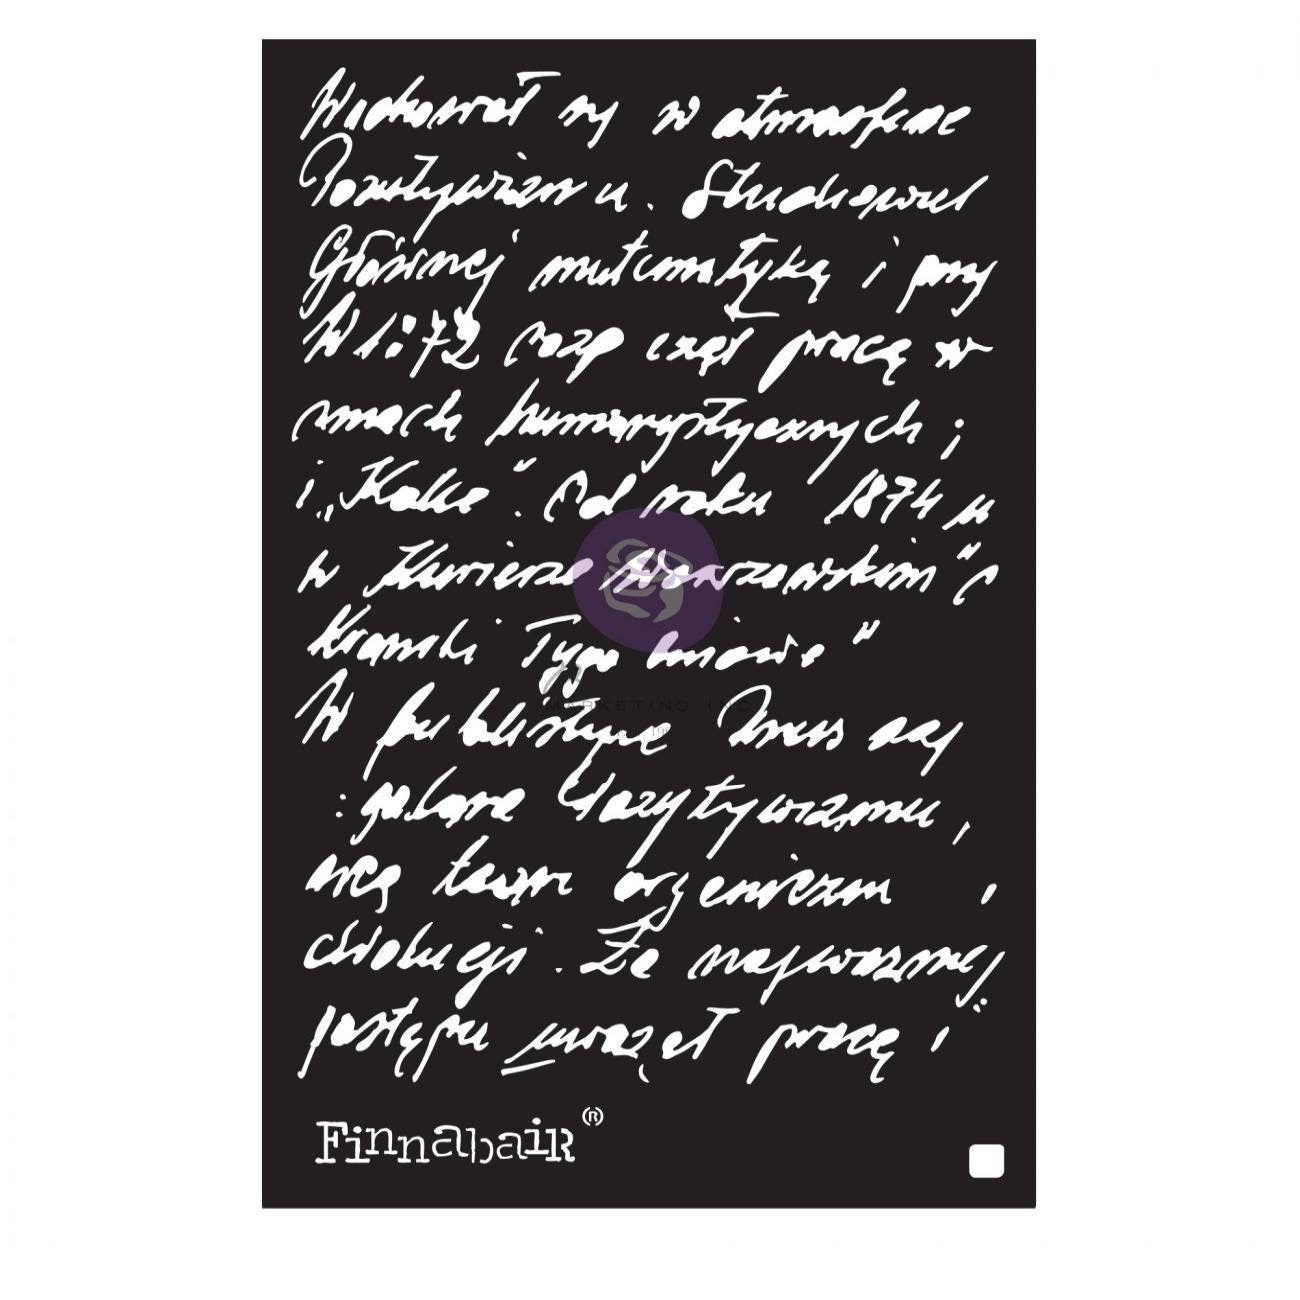 Wychował się w atmosferze
Pozytywizmu. Studiował
Głównej matematykę i przy
W 1872 rozpoczął pracę w
smach humorystycznych
i „Kolce". Od roku 1874
w Kurierze Warszawskim"
Kroniki Tygodniowe"
W publicystyce Prus
: hasła Pozytywizmu,
pracę organiczną
ewolucji. Za najważniej
postępu uważał pracę i
Finnabair®
MARKETING INC